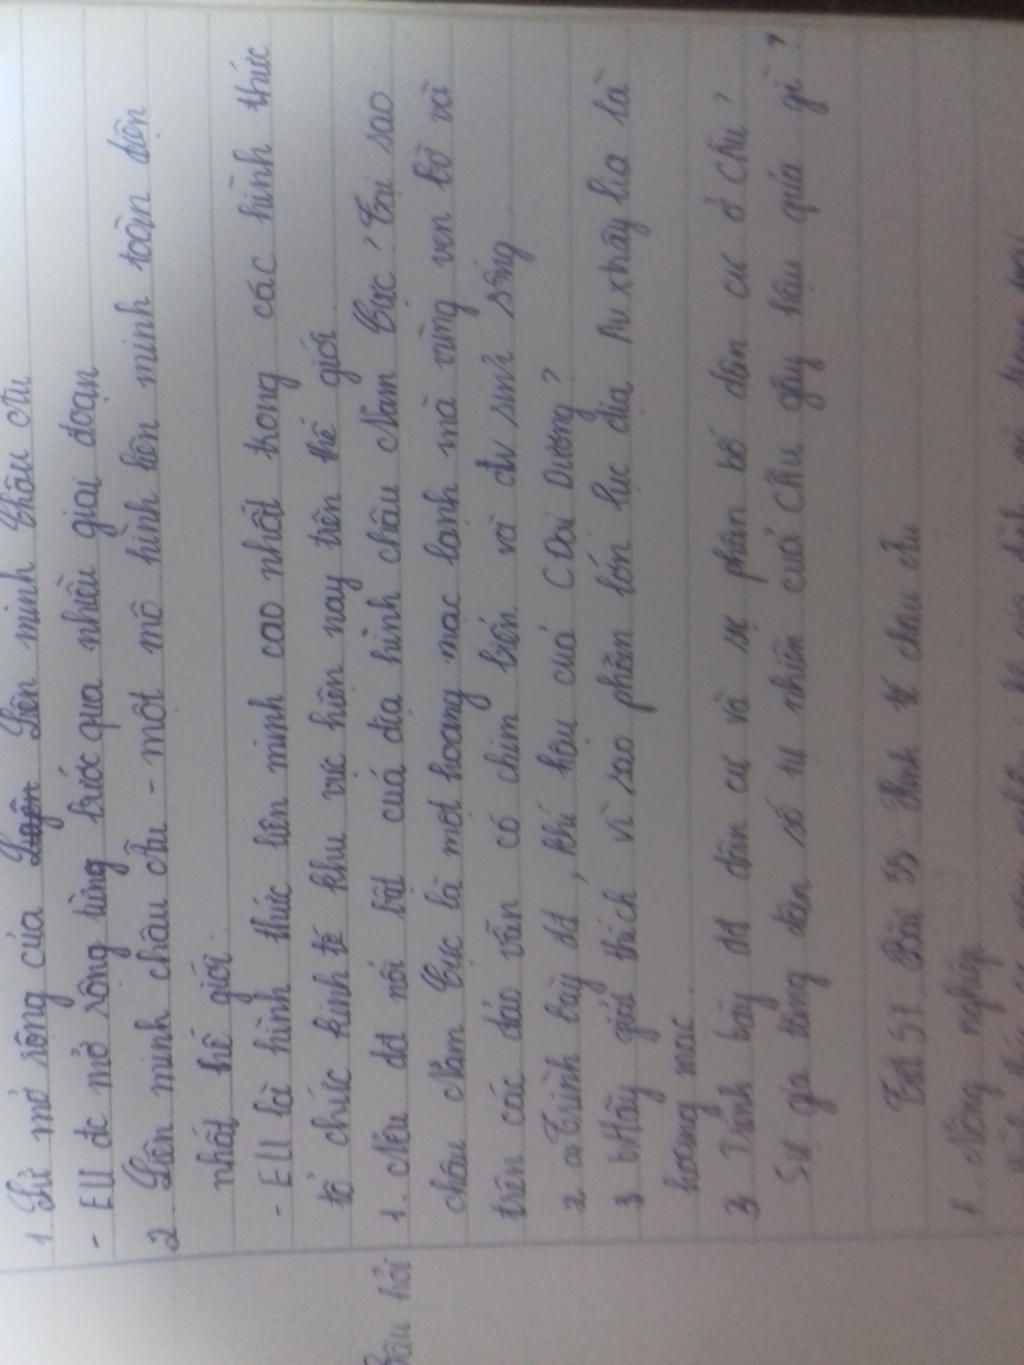 1. Sự mở rộng của Liên minh Châu Âu
- EU đc mở rộng từng bước qua nhiều giai đoạn
2. Liên minh châu Âu - một mô hình liên minh toàn diện
nhất thế giới.
- EU là hình thức liên minh cao nhất trong các hình thức
tổ chức kinh tế khu vực hiện nay trên thế giới.
Câu hỏi
1. Nêu đđ nổi bật của địa hình châu Nam Cực? Tại sao
châu Nam Cực là một hoang mạc lạnh mà vùng ven bờ và
trên các đảo vẫn có chim biển và đv sinh sống.
2 a Trình bày đđ, khí hậu của C Đại Dương?
3 b Hãy giải thích vì sao phần lớn lục địa là
hoang mạc.
3 Trình bày đđ dân cư và sự phân bố dân cư ở Châu?
Sự gia tăng dân số tự nhiên của Châu gây hậu quả gì?
Tiết 57 Bài 55 Kinh tế châu Âu
1. Nông nghiệp